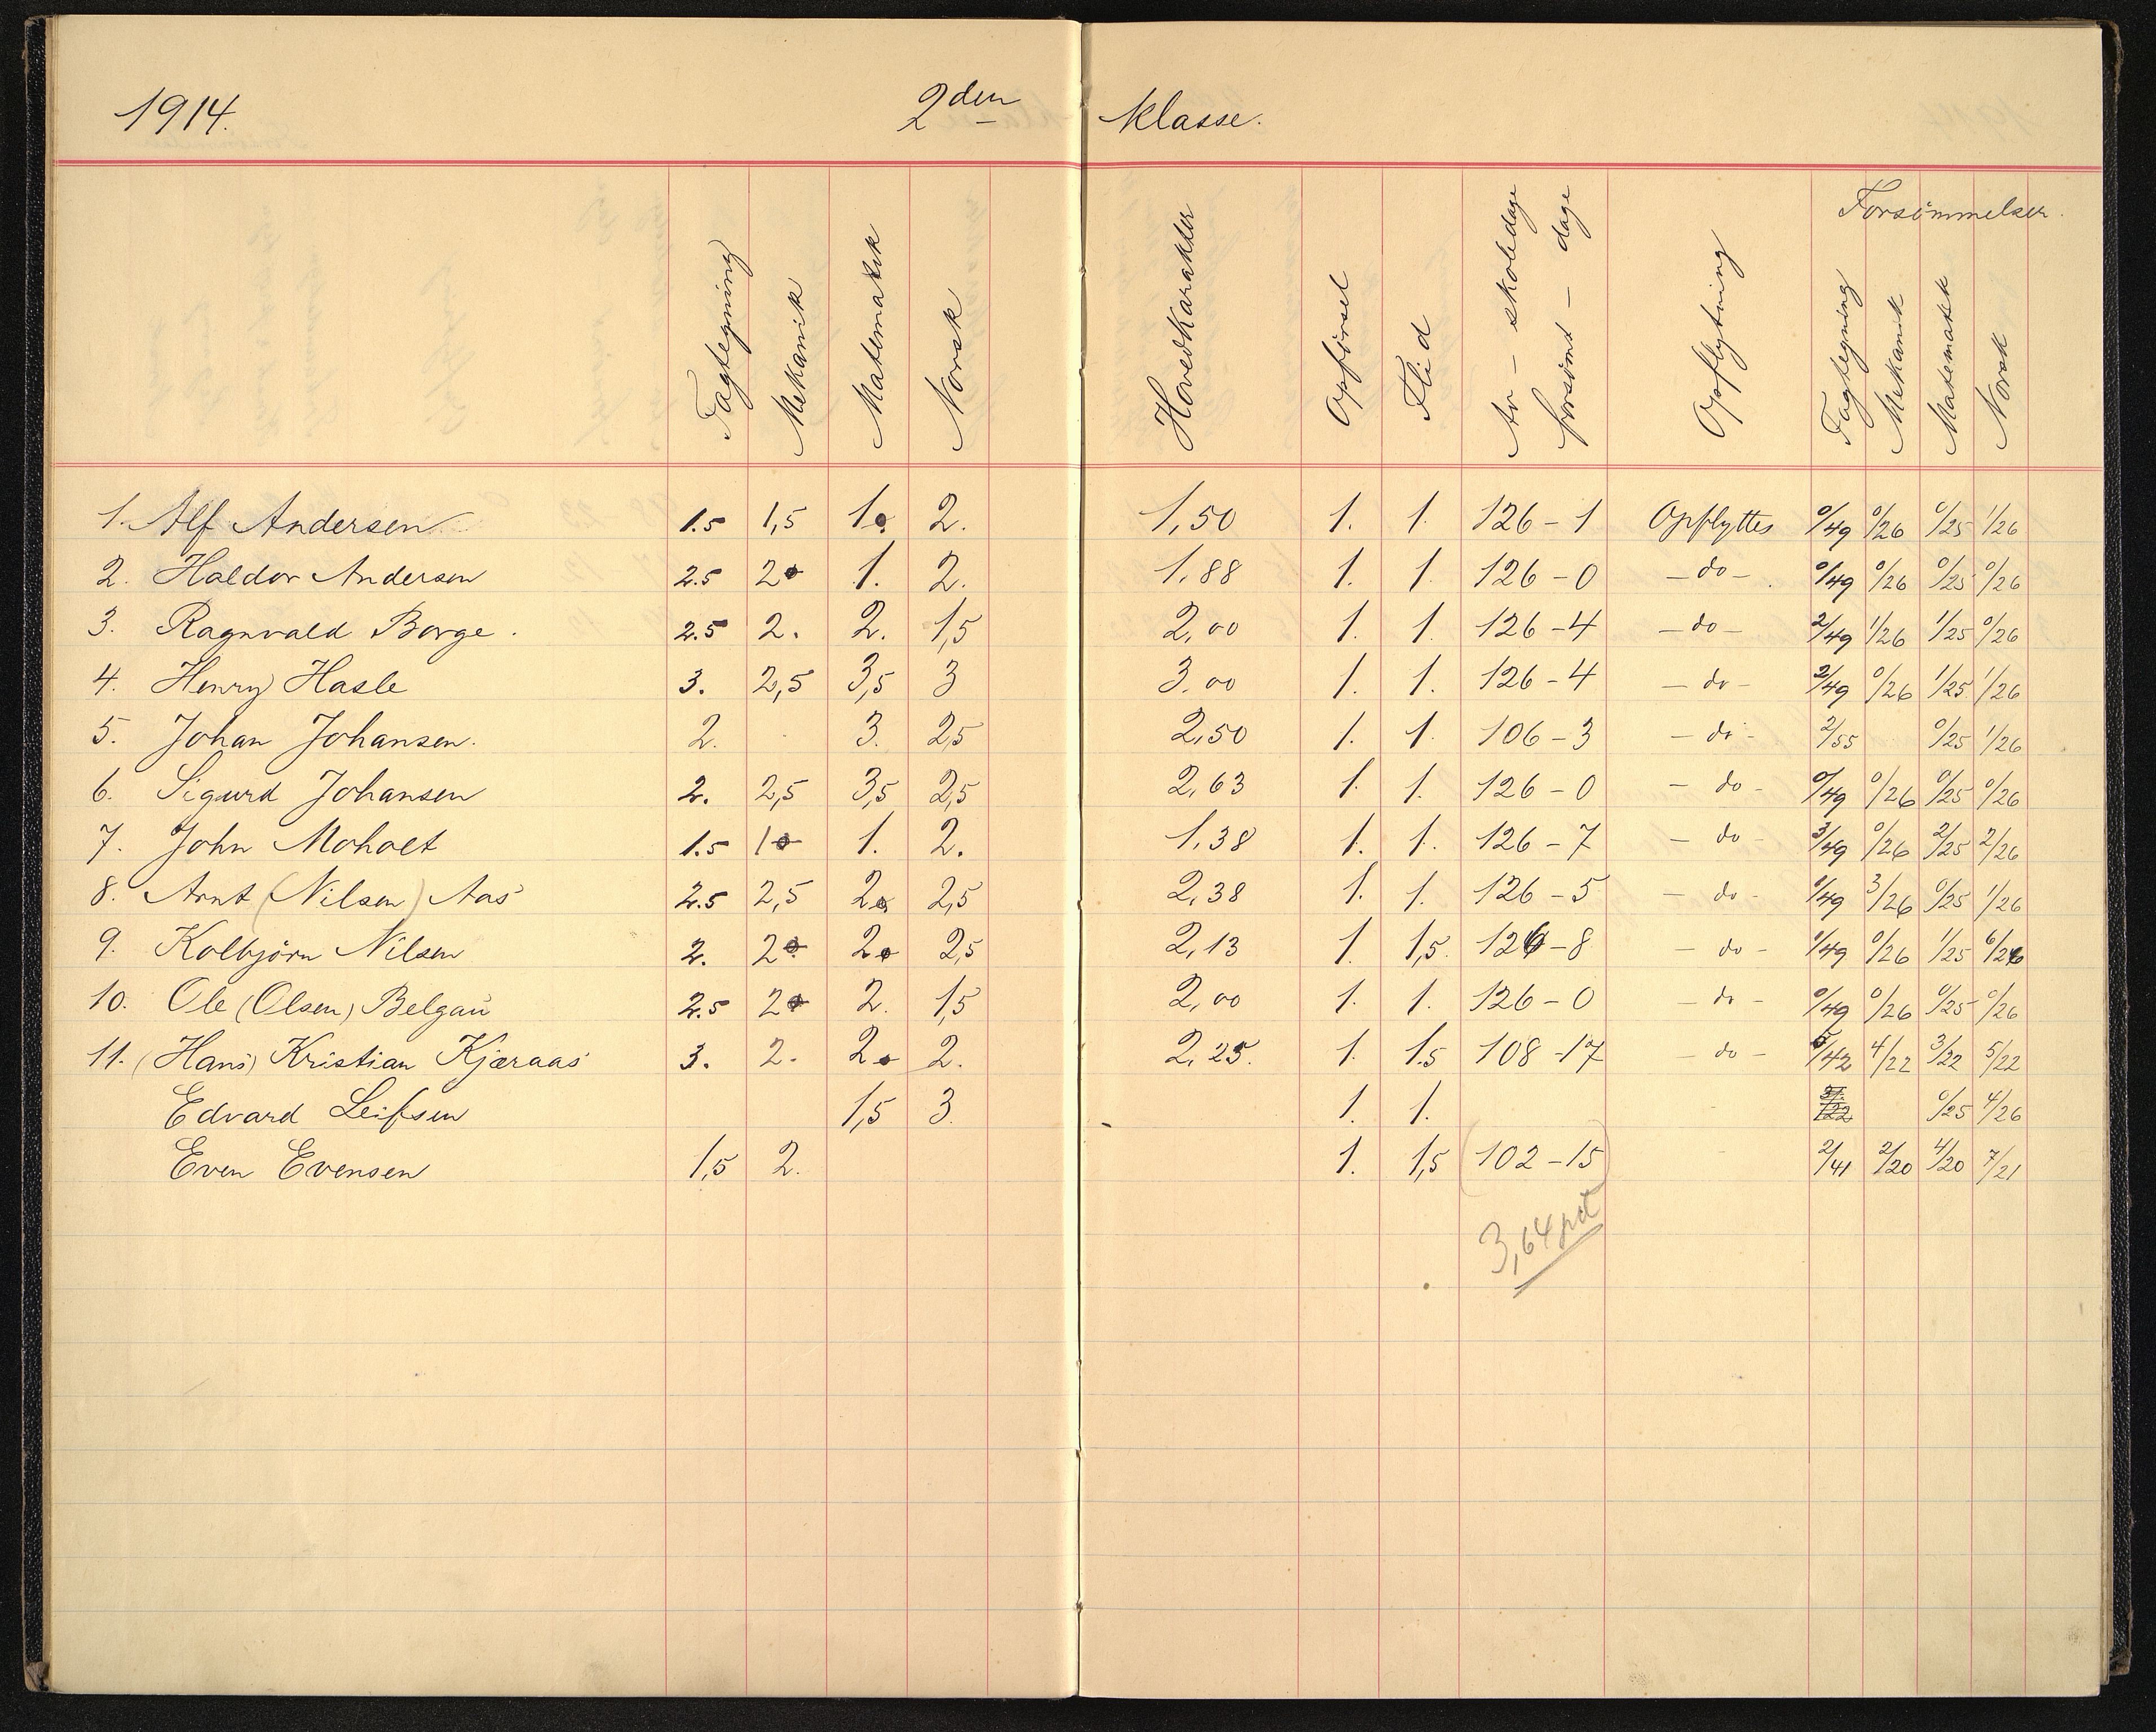 1914. 2den klasse.
Fagtegning Mekanik Matematik Norsk Hovedkarakter Opførsel Flid Av - skoledage forsømt - dage Opflytning Forsømmelser. Fagtegning Mekanik Matematik Norsk
1. Alf Andersen 1.5 1,5 1. 2. 1,50 1. 1. 126 - 1 Opflyttes 0/49 0/26 0/25 1/26
2. Haldor Andersen 2.5 2. 1. 2. 1,88 1. 1. 126 - 0 - do - 0/49 0/26 0/25 0/26
3. Ragnvald Borge. 2.5 2. 2. 1,5 2,00 1. 1. 126 - 4 - do - 2/49 1/26 1/25 0/26
4. Henry Hasle 3. 2,5 3,5 3 3.00 1. 1. 126 - 4 - do - 2/49 0/26 1/25 1/26
5. Johan Johansen. 2. 3. 2,5 2,50 1. 1. 106 - 3 - do - 2/55 0/25 1/26
6. Sigurd Johansen 2. 2,5 3,5 2,5 2,63 1. 1. 126 - 0 - do - 0/49 0/26 0/25 0/26
7. John Moholt 1.5 1 1. 2. 1,38 1. 1. 126 - 7 - do - 3/49 0/26 2/25 2/26
8. Arnt (Nilsen) Aas 2.5 2,5 2. 2,5 2,38 1. 1. 126 - 5 - do - /49 3/26 0/25 1/26
9. Kolbjørn Nilsen 2. 2. 2. 2,5 2,13 1. 1,5. 126 - 8 - do - /49 0/26 1/25 6/26
10. Ole (Olsen) Belgau 2.5 2. 2. 1,5 2,00 1. 1. 126 - 0 - do - 0/49 0/26 0/25 0/26
11. (Hans) Kristian Kjæraas 3. 2. 2. 2. 2,25. 1. 1.5 108 - 17 - do - 5/42 4/22 3/22 5/22
Edvard Leifsen 1,5 3. 1. 1. 0/25 4/26
Even Evensen 1,5 2. 1. 1,5 (102 - 15) 2/41 2/20 4/20 7/21
3,64 pct